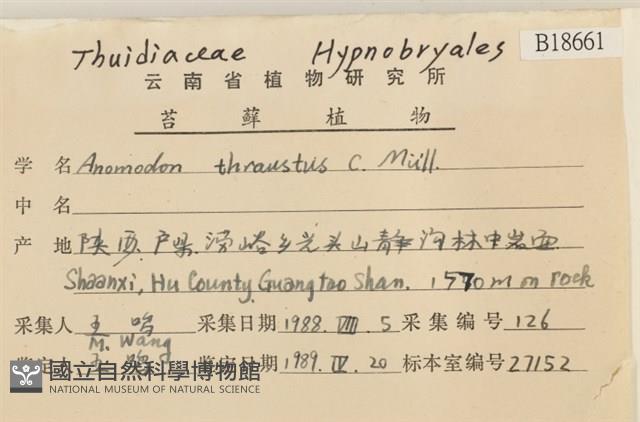 Thuidiaceae Hypnobryales B18661
云南省植物研究所
苔藓植物
学名 Anomodon thraustus C. Müll.
中名
产地 陕西户县涝峪乡光头山静沟林中岩面
Shaanxi, Hu County, Guangtao Shan. 1570m on rock
采集人 王 采集日期 1988. VIII. 5 采集编号 126
M. Wang
鉴定人 王 鉴定日期 1989. IV. 20 标本室编号 27152
國立自然科學博物館
NATIONAL MUSEUM OF NATURAL SCIENCE